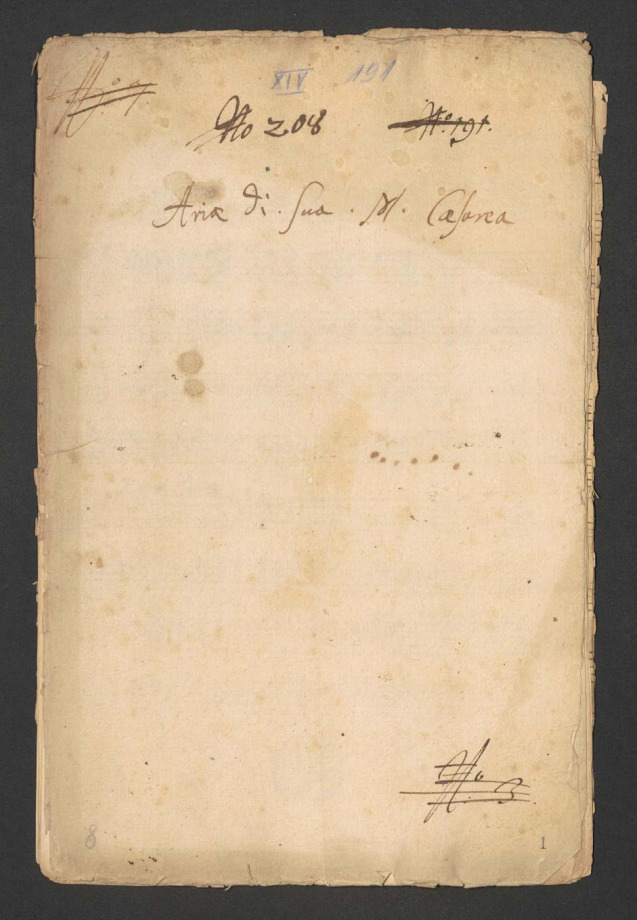 XIV 191
No. 7.
No 208 No. 191.
Ariæ di . Sua . M. Cæsarea
No 3.
8 1